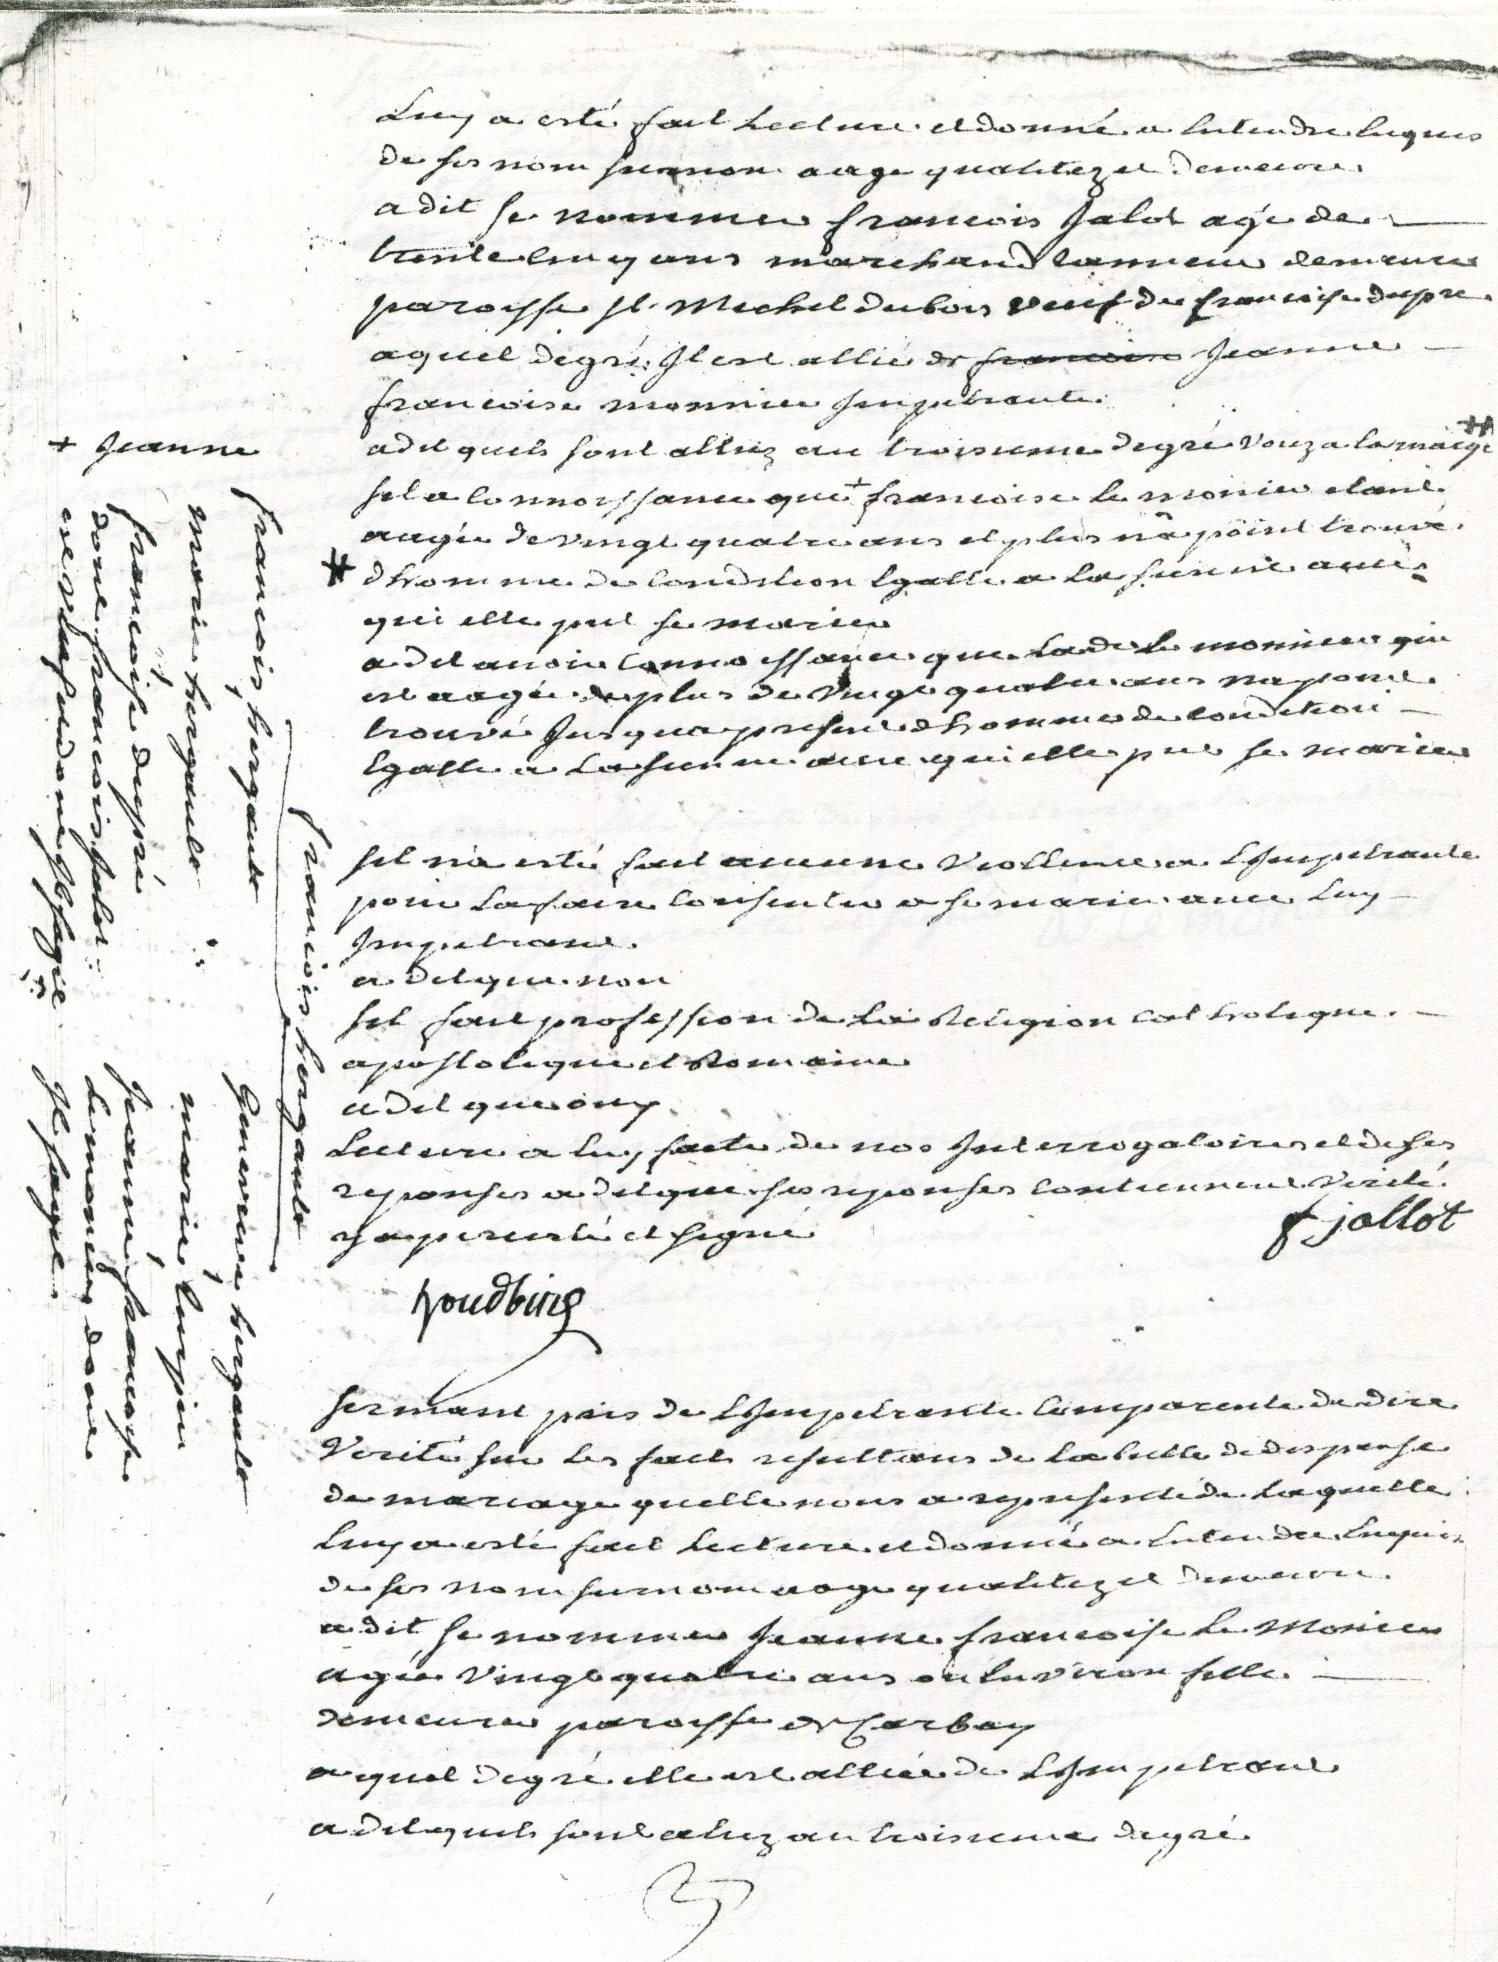 Luy a esté fait Lecture et donné a Entendre Enquis
de ses nom surnom aage qualitez et demeure
a dit se nommer francois Jalot agé de
trente cinq ans marchand tanneur demeure
paroisse st Michel du bois veuf de francoise dupre
a quel degré Il est allié de francoise Jeanne
francoise monnier Impetrante
a dit quils sont alliez au troisieme degré Voyez a la marge ++
sil a connoissance que + francoise Le monier etant
aagée de vingt quatre ans et plus na point trouvé
# dhomme de condition Egalle a la sienne avec
qui elle put se marier
a dit avoir connoissance que Lade Le monnier qui
est aagée de plus de vingt quatre ans na point
trouvé Jusqua present dhomme de condition
Egalle a La sienne avec qui elle put se marier
sil na esté fait aucune Viollence a LImpetrante
pour La faire consentir a se marier avec Luy
Impetrant
a dit que non
sil fait profession de La Religion catholique
apostolique et Romaine
a dit que ouy
Lecture a luy faite de nos Interrogatoires et de ses
reponses a dit que ses reponses contiennent Verité
y a persisté et signé
f jallot
serment pris de LImpetrante comparente de dire
Verité sur Les faits resultans de La bulle de dispense
de mariage quelle nous a representé de Laquelle
Luy a esté fait Lecture et donné a Entendre Enquis
de ses nom surnom aage qualitez et demeure
a dit se nommer Jeanne francoise Le Monier
agée Vingt quatre ans ou Environ fille
demeure paroisse de Carbay
a quel degré elle est alliée de LImpetrant
a dit quils sont aliez au troisieme degré
+ Jeanne
francois hergault
francois hergault
marie hergault
francoise dupré
dont francois Jalot
est veuf
Genevieve hergault
marie
Jeanne francoise
Le monier dont
Il sagit